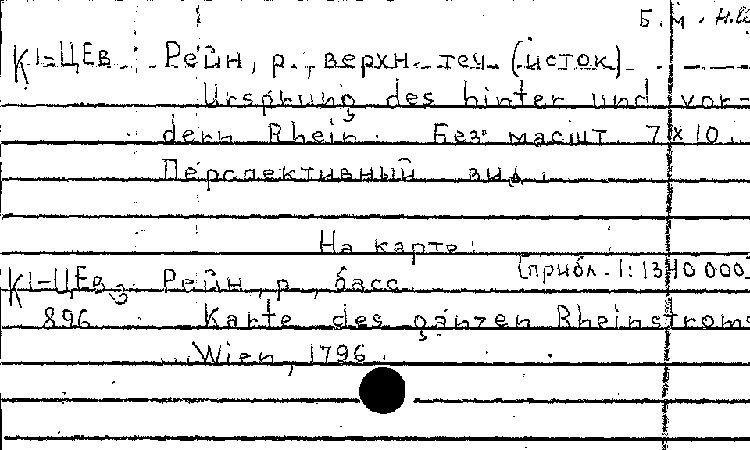 Б.м.
К1-ЦЕв Рейн, р., верхн. теч. (исток)
Ursprung des hinter und vor-
dern Rhein. Без масшт 7х10.
Перспективный вид.
На карте:
(прибл. 1:1340000)
К1-ЦЕв Рейн, р., басс
896 Karte des ganzen Rheinstroms
Wien, 1796.